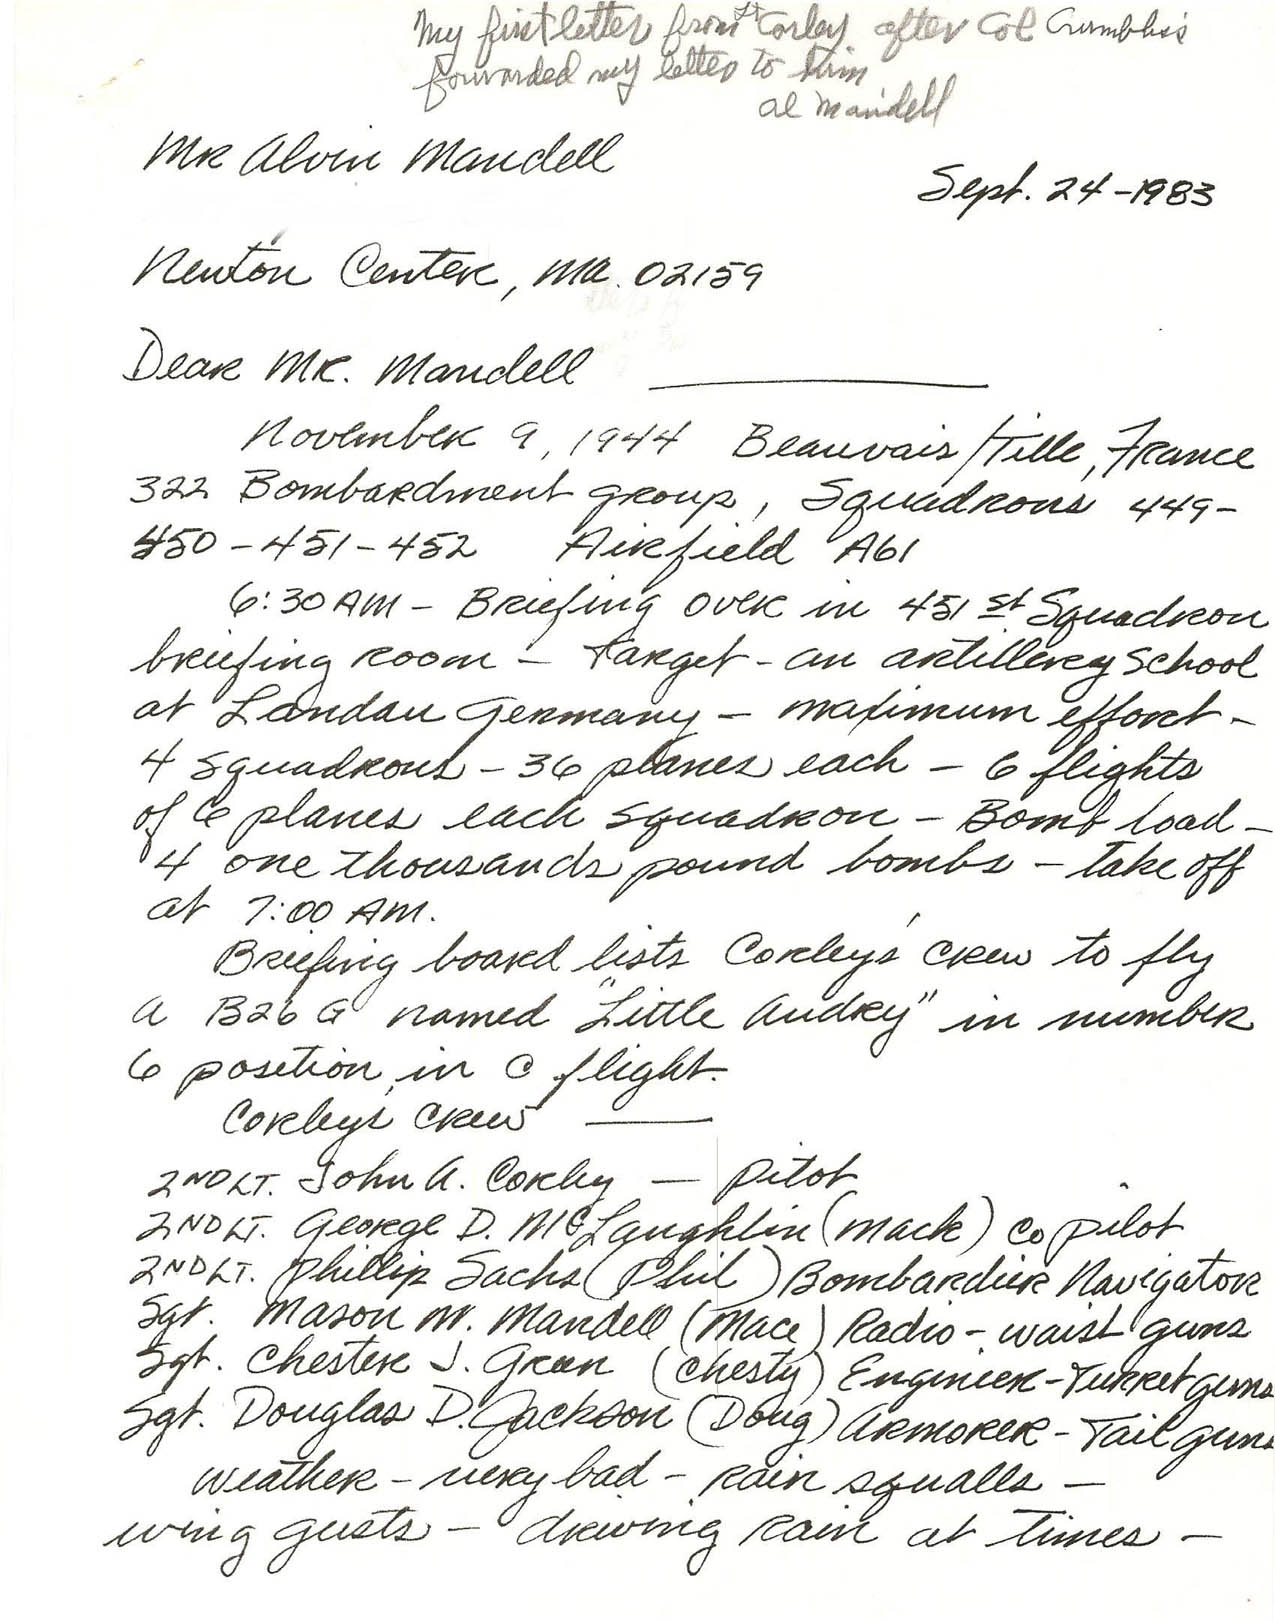 My first letter from Lt Corley after Col Crumbliss
forwarded my letter to him
Al Mandell
Mr Alvin Mandell
Sept. 24-1983
Newton Center, Ma. 02159
Dear Mr. Mandell
November 9, 1944 Beauvais/Tille, France
322 Bombardment group, Squadrons 449-
450-451-452 Airfield A61
6:30 AM - Briefing over in 451st Squadron
briefing room - Target - an artillery school
at Landau Germany - maximum effort -
4 squadrons - 36 planes each - 6 flights
of 6 planes each squadron - Bomb load -
4 one thousands pound bombs - take off
at 7:00 AM.
Briefing board lists Corley's crew to fly
a B26 G named "Little Audry" in number
6 position in C flight.
Corley's Crew
2ND LT. John A. Corley - Pilot
2ND LT. George D. McLaughlin (Mack) Co pilot
2ND LT. Phillip Sachs (Phil) Bombardier Navigator
Sgt. Mason M. Mandell (Mace) Radio - waist guns
Sgt. Chester J. Green (Chesty) Engineer - Turret guns
Sgt. Douglas D. Jackson (Doug) Armorer - Tail guns
Weather - very bad - rain squalls -
wing gusts - driving rain at times -